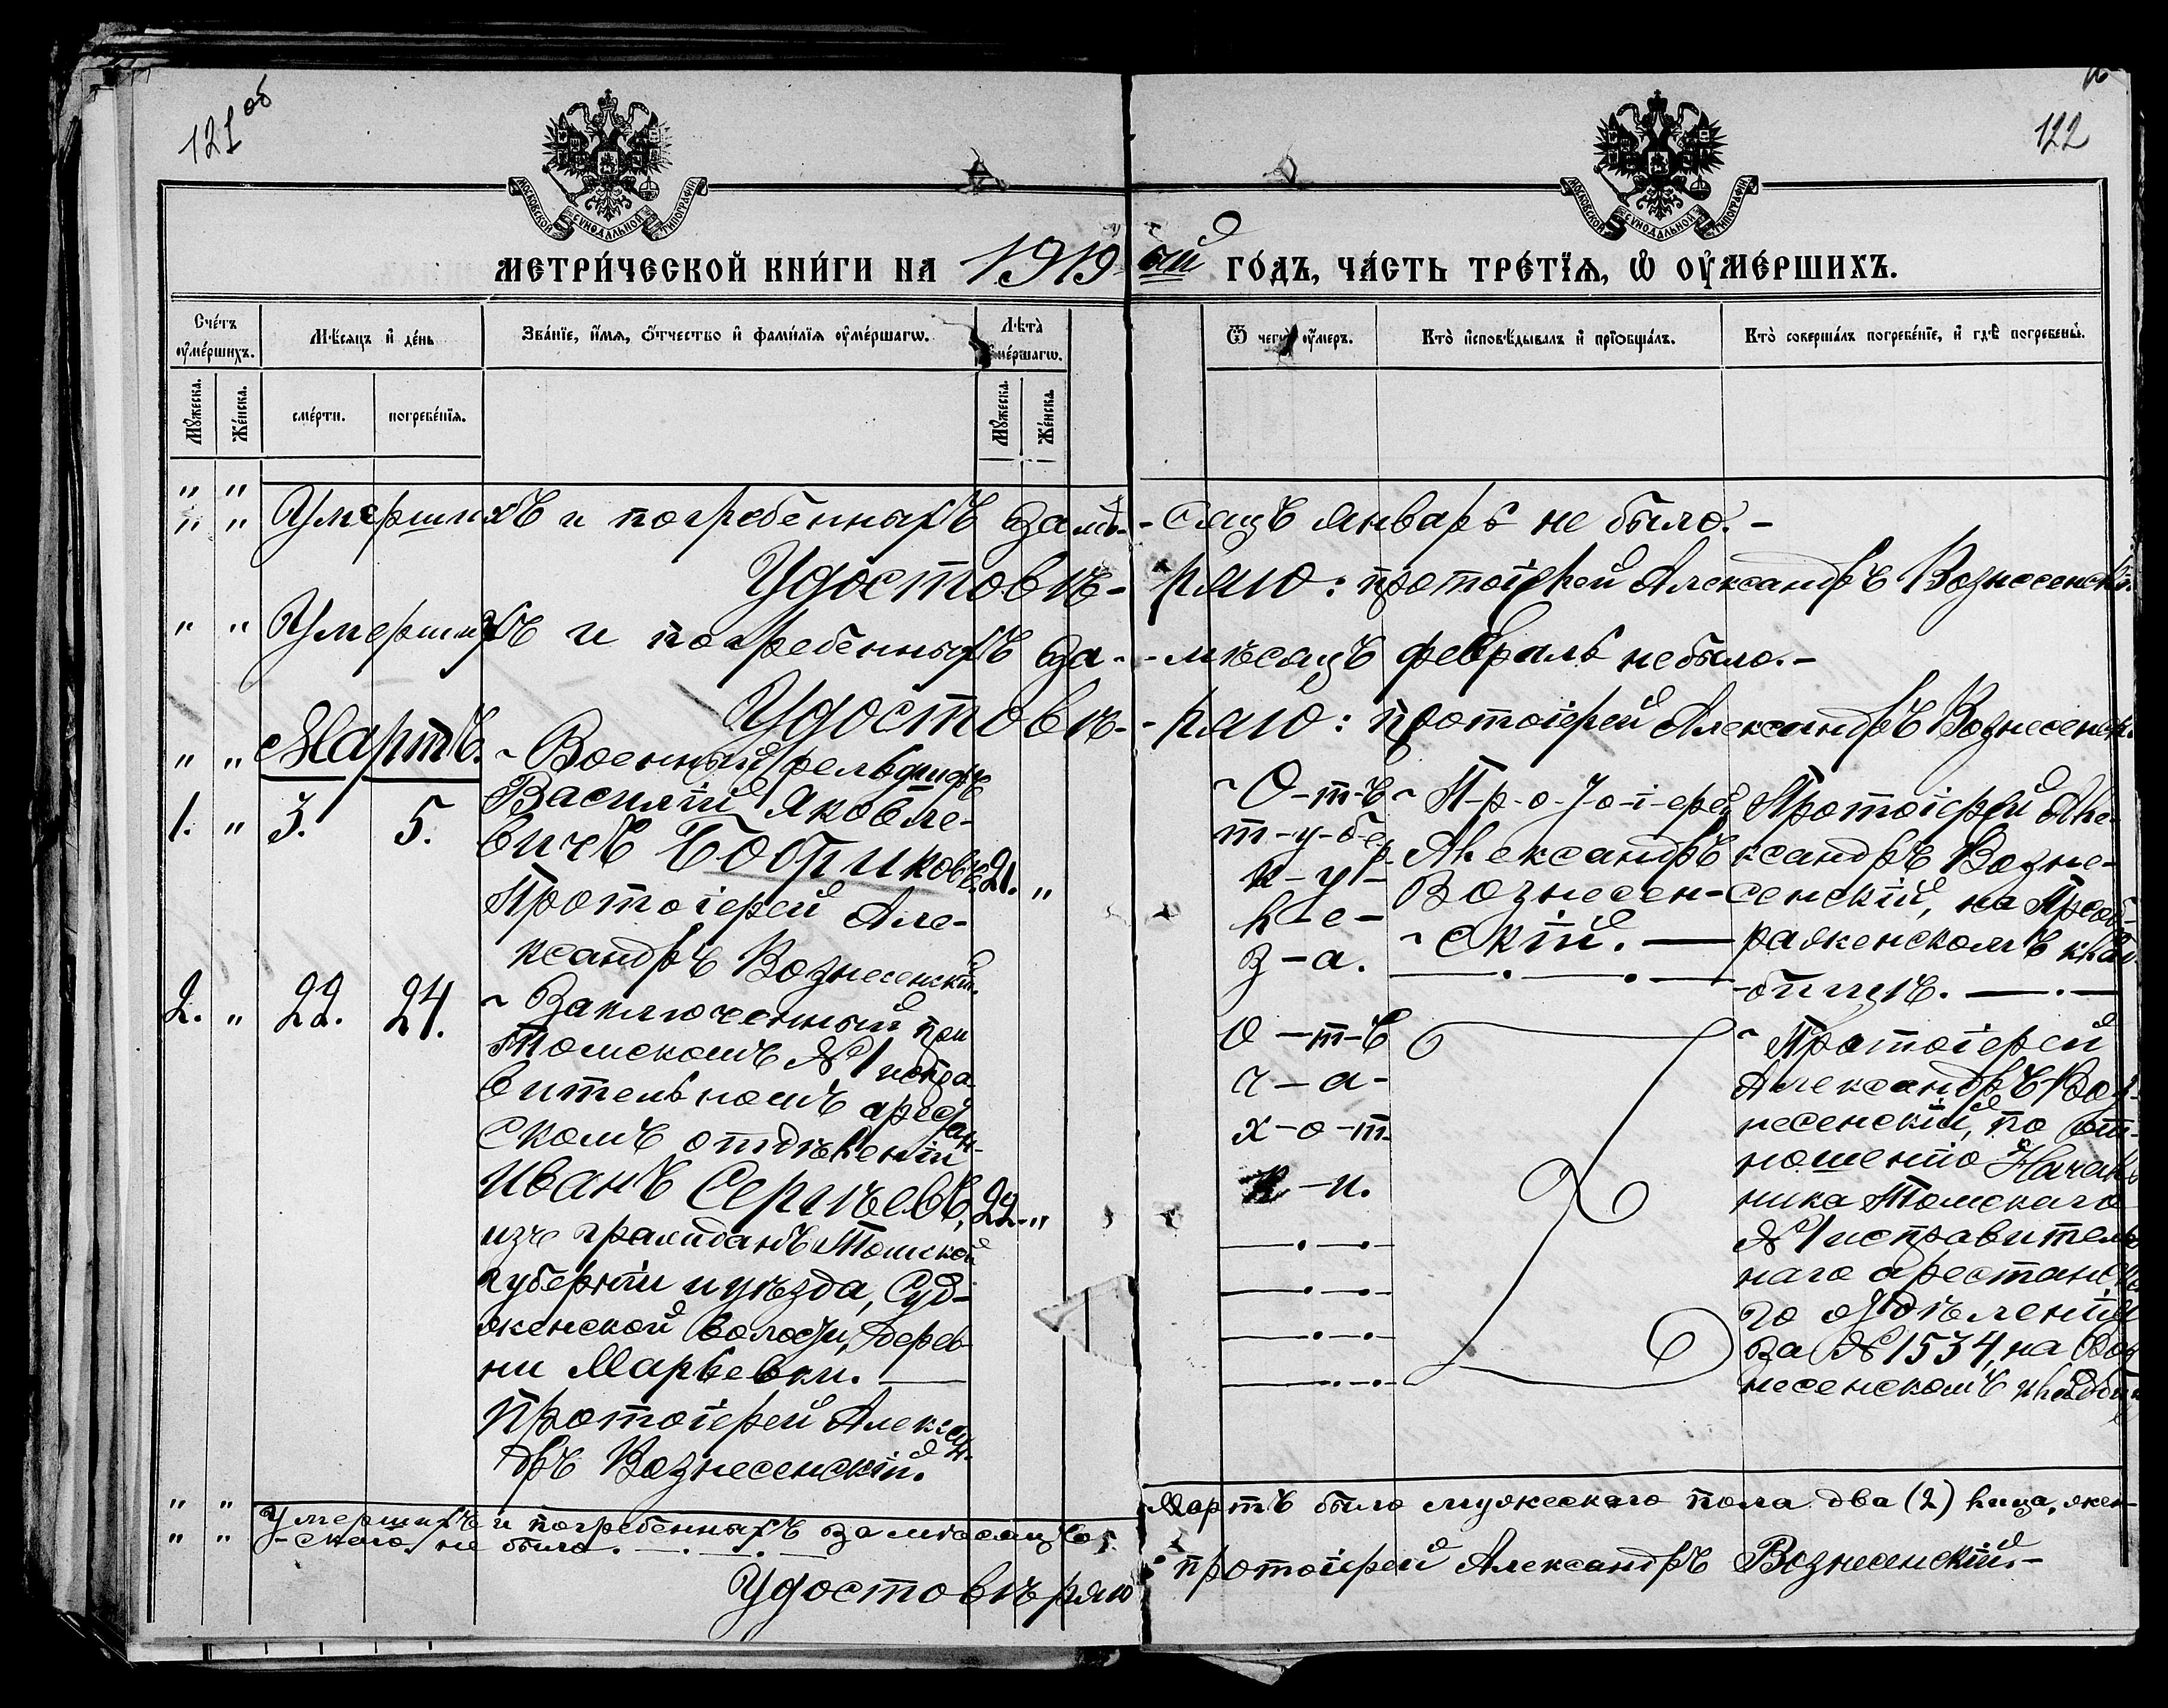 121 об
122
МОСКОВСКОЙ СѴНОДАЛЬНОЙ ТИПОГРАФІИ
МОСКОВСКОЙ СѴНОДАЛЬНОЙ ТИПОГРАФІИ
МЕТРИ́ЧЕСКОЙ КНИ́ГИ НА 1919 ый ГО́ДЪ, ЧА́СТЬ ТРЕ́ТЇѦ, Ѡ҆ ОУ҆МЕ́РШИХЪ.
Сче́тъ оу҆ме́ршихъ.
Мѣ́сяцъ и҆ де́нь
Зва́нїе, и҆́мя, ѻ҆́тчество и҆ фами́лїя оу҆ме́ршагѡ.
Лѣ́та оу҆ме́ршагѡ.
Ѿ чегѡ̀ оу҆́меръ.
Кто̀ и҆сповѣ́дывалъ и҆ прїѡбща́лъ.
Кто̀ соверша́лъ погребе́нїе, и҆ гдѣ̀ погребены̀.
Мꙋ́жеска.
Же́нска.
сме́рти.
погребе́нїя.
Мꙋ́жеска.
Же́нска.
" "
" " Умершихъ и погребенныхъ за мѣ- - сяцъ январь не было. -
Удостовѣ- ряю: протоіерей Александръ Вознесенскій.
" " Умершихъ и погребенныхъ за- - мѣсяцъ февраль не было. -
Удостовѣ- - ряю: протоіерей Александръ Вознесенск.
" " Мартъ.
1. " 3. 5.
~ Военный фельдшеръ
Василій Яковле-
вичъ Бобриковъ. 21. "
Протоіерей Але-
ксандръ Вознесенскій.
~ О-т-ъ
т-у-бе р-
к-у-
л-е-
з-а.
~ П-р-о-т-о-і-ерей
Александръ
Вознесен-
~ скій. —
Протоіерей Але-
ксандръ Возне-
сенскій, на Преоб-
раженскомъ клад-
бищѣ. —
2. " 22. 24.
~ Заключенный при
Томскомъ № 1 испра
вительномъ арестан-
скомъ отдѣленіи
Иванъ Сергѣевъ, 22. "
изъ гражданъ Томской
губерніи и уѣзда, Суд-
женской волости, дерев-
ни Марьевки. —
Протоіерей Алексан-
дръ Вознесенскій.
О-т-ъ
ч-а-
х-о-т-
к-и.
~ Протоіерей
Александръ Воз-
несенскій, по от-
ношенію Началь
ника Томскаго
№ 1 исправитель
наго арестанск
го отдѣленія
за № 1534, на Воз
несенскомъ кладби
" " Умершихъ и погребенныхъ за мѣсяцъ Мартъ было мужескаго пола два (2) лица, жен-
" " - скаго не было. —
Удостовѣряю : протоіерей Александръ Вознесенскій. -